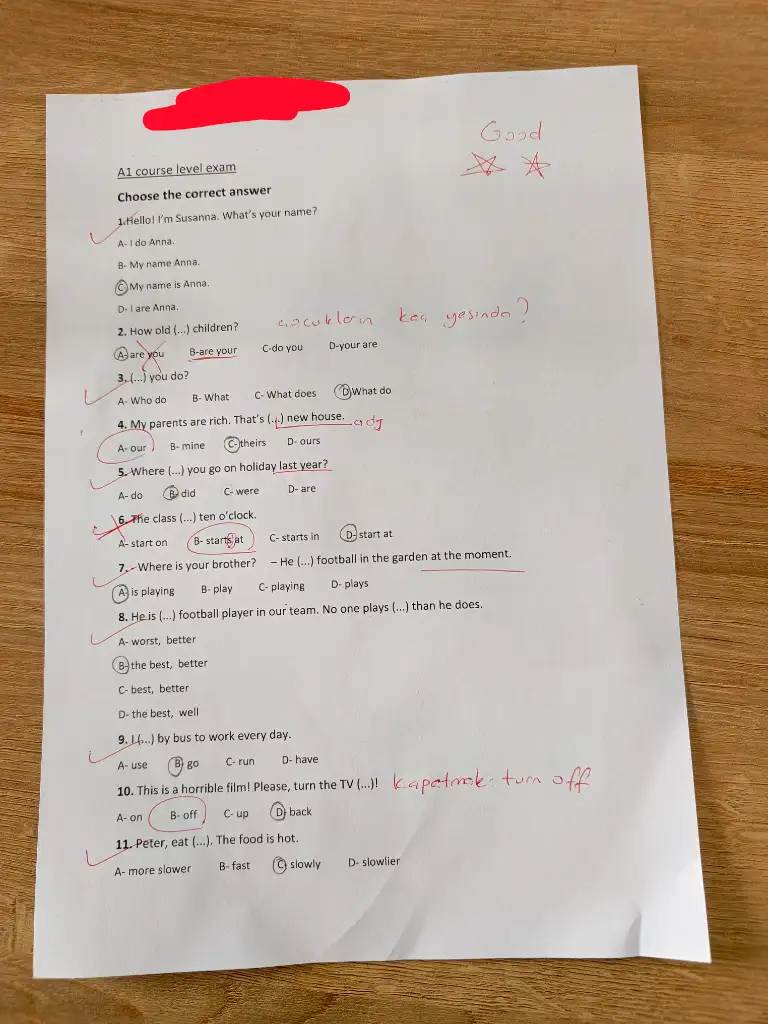 Good
A1 course level exam
Choose the correct answer
1.Hello! I'm Susanna. What's your name?
A- I do Anna.
B- My name Anna.
C- My name is Anna.
D- I are Anna.
2. How old (...) children? çocukların kaç yaşında?
A- are you B-are your C-do you D-your are
3. (...) you do?
A- Who do B- What C- What does D- What do
4. My parents are rich. That's (...) new house. adj
A- our B- mine C- theirs D- ours
5. Where (...) you go on holiday last year?
A- do B- did C- were D- are
6. The class (...) ten o'clock.
A- start on B- starts at C- starts in D- start at
7. - Where is your brother? – He (...) football in the garden at the moment.
A- is playing B- play C- playing D- plays
8. He is (...) football player in our team. No one plays (...) than he does.
A- worst, better
B- the best, better
C- best, better
D- the best, well
9. I (...) by bus to work every day.
A- use B- go C- run D- have
10. This is a horrible film! Please, turn the TV (...)! kapatmak: turn off
A- on B- off C- up D- back
11. Peter, eat (...). The food is hot.
A- more slower B- fast C- slowly D- slowlier